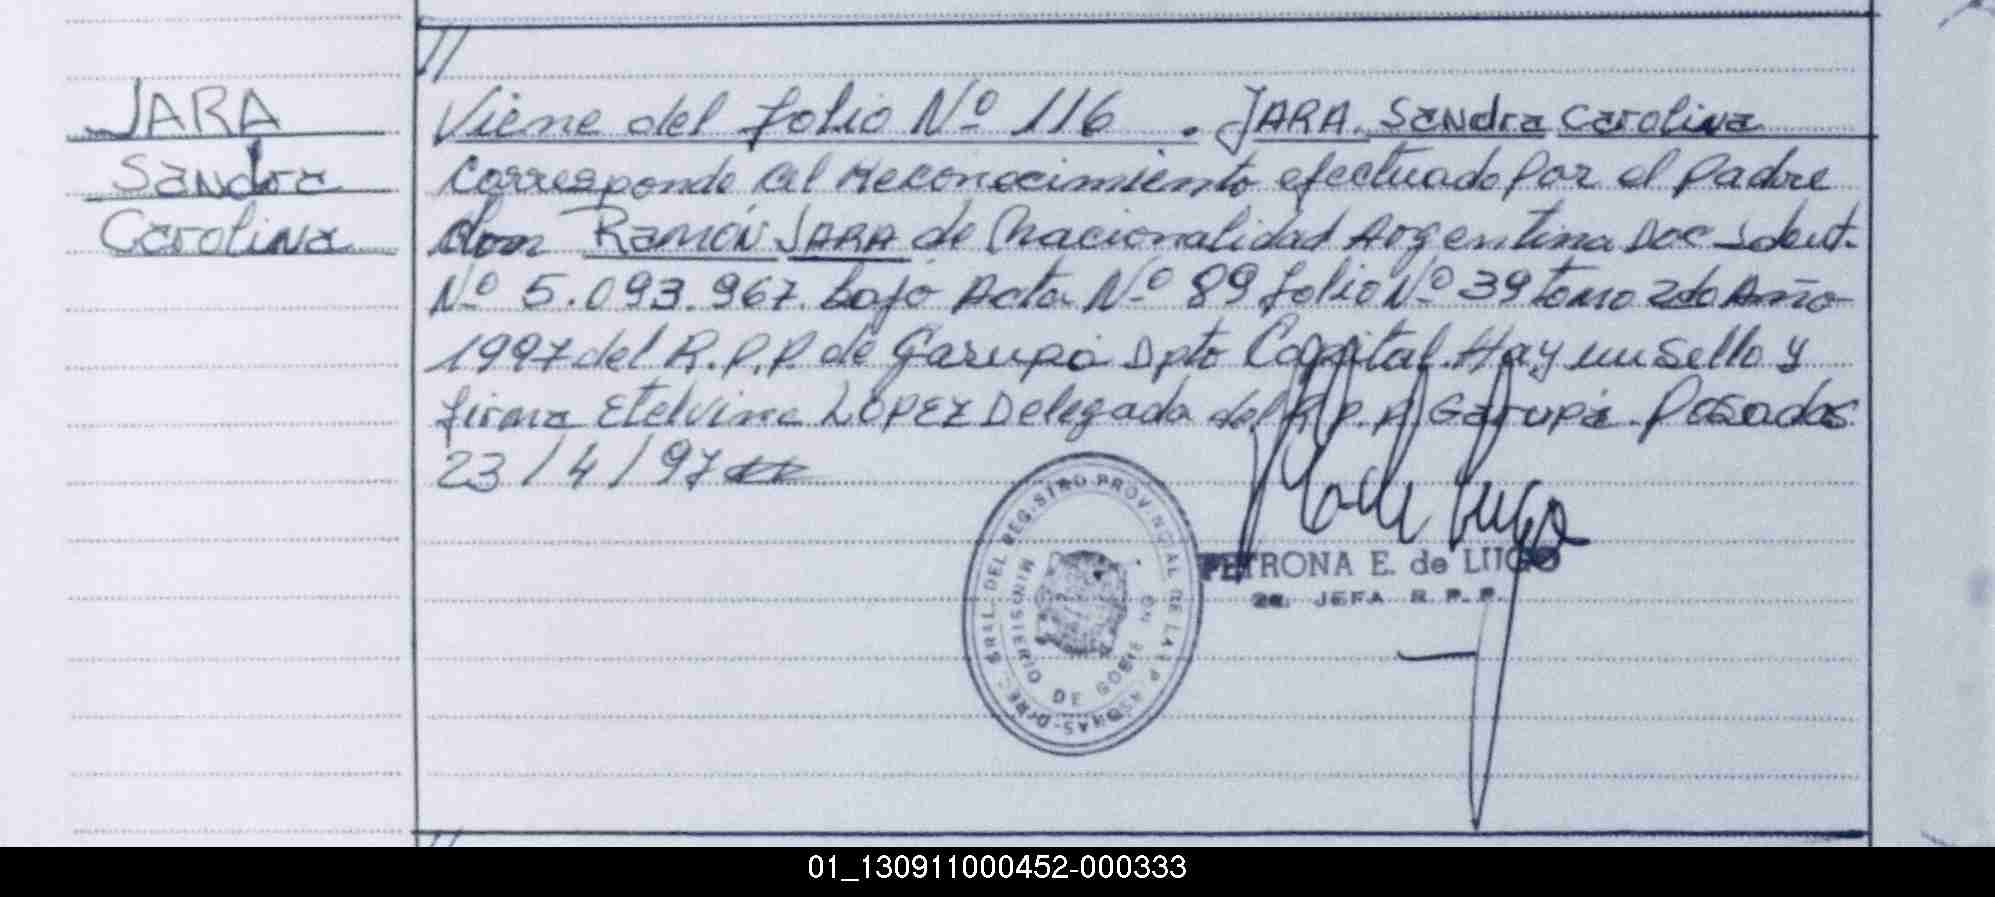 //
JARA
Sandra
Carolina
Viene del folio Nº 116 . JARA. Sandra Carolina
Corresponde al Reconocimiento efectuado Por el Padre
don Ramón JARA de Nacionalidad Argentina Doc Ident.
Nº 5.093.967. bajo Acta Nº 89 folio Nº 39 tomo 2do Año
1997 del R.P.P. de Garupá Dpto Capital. Hay un Sello y
firma Etelvina LOPEZ Delegada del R.P.P. Garupá. Posadas
23/4/97
DIREC. GRAL. DEL REGISTRO PROVINCIAL DE LAS PERSONAS
MINISTERIO DE GOBIERNO
PETRONA E. de LUGO
2a. JEFA R.P.P.
//
01_130911000452-000333